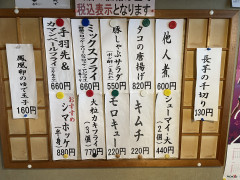 税込表示となります。
他人煮
600円
タコの唐揚げ
820円
豚しゃぶサラダ
550円
ミックスフライ
660円
手羽先&
カマンベールフライ
660円
長芋の千切り
130円
鳳凰卵のゆで玉子
160円
シューマイ
440円
キムチ
220円
モロキュー
220円
大粒カキフライ
770円
おすすめ
シマホッケ
880円